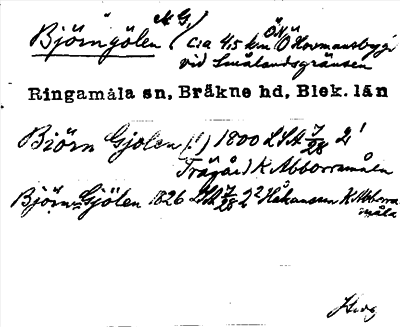 Björngölen MG. ( c:a 4,5 km ÖNÖ Hormansbygd
vid Smålandsgränsen
Ringamåla sn, Bräkne hd, Blek. län
Biörn Gjolen (!) 1800 LSA 7/28 2¹
Trägård K Abborramåla
Björn Gjölen 1826 LSA 7/28 2² Håkansson K Abborra
måla